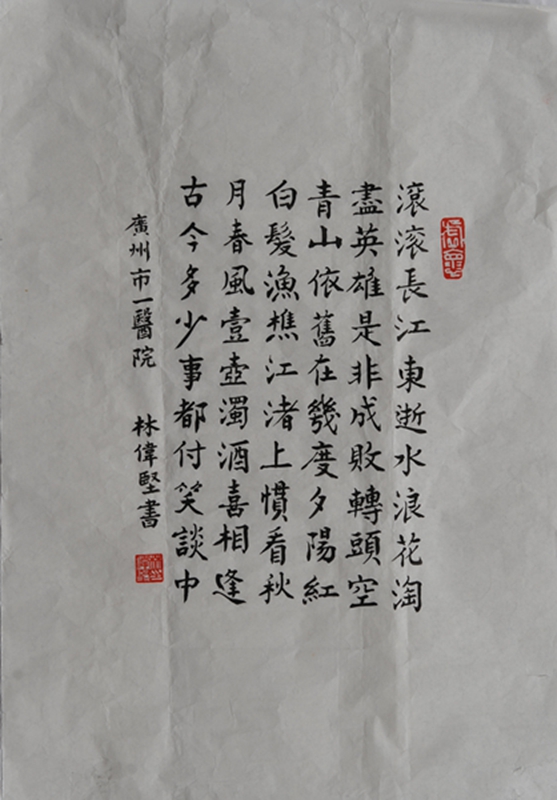 滾滾長江東逝水浪花淘
盡英雄是非成敗轉頭空
青山依舊在幾度夕陽紅
白髮漁樵江渚上慣看秋
月春風壹壺濁酒喜相逢
古今多少事都付笑談中
廣州市一醫院 林偉堅書